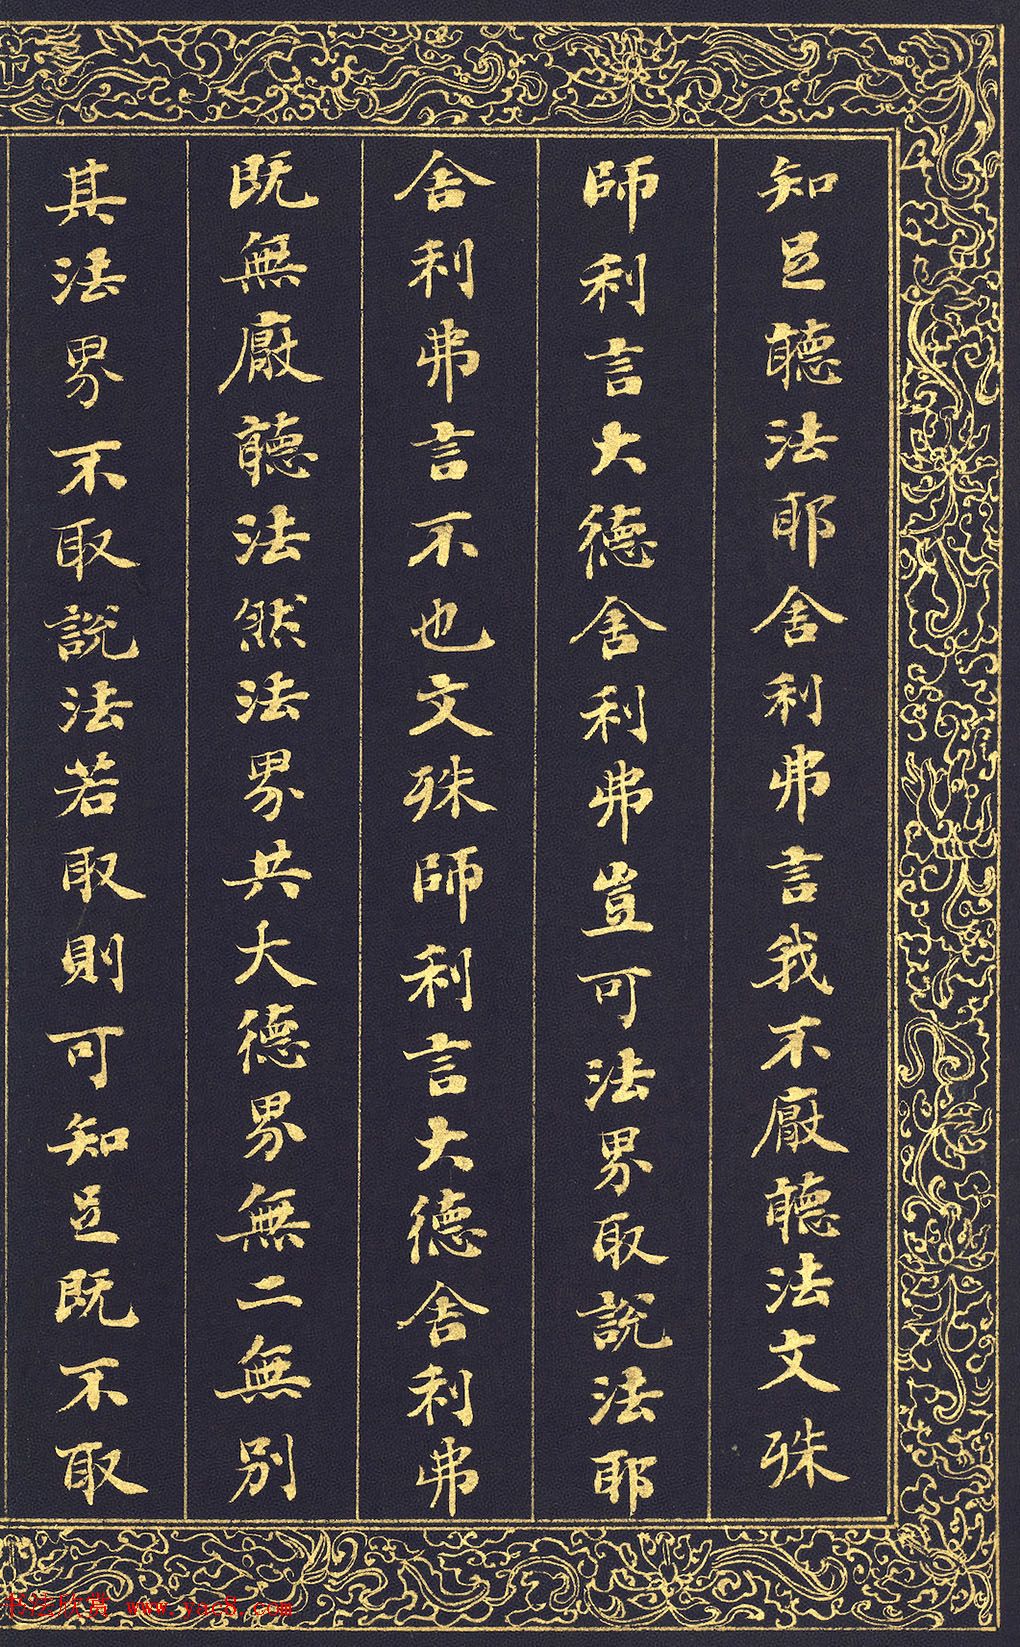 知足聽法耶舍利弗言我不厭聽法文殊
師利言大德舍利弗豈可法界取說法耶
舍利弗言不也文殊師利言大德舍利弗
既無厭聽法然法界共大德界無二無別
其法界不取說法若取則可知足既不取
书法欣赏 www.yac8.com